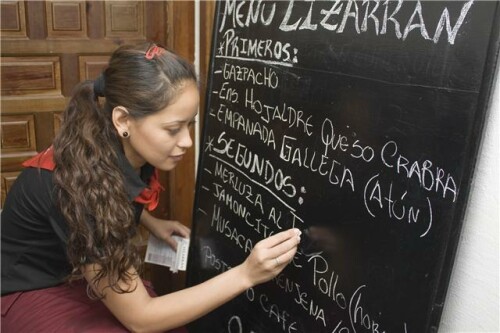 MENÚ LIZARRAN
*PRIMEROS:
-GAZPACHO
-ENS. HOJALDRE QUESO CRABRA
-EMPANADA GALLEGA (ATÚN)
*SEGUNDOS:
-MERLUZA AL
-JAMONCITO Pollo
-MUSACA
CAFÉ